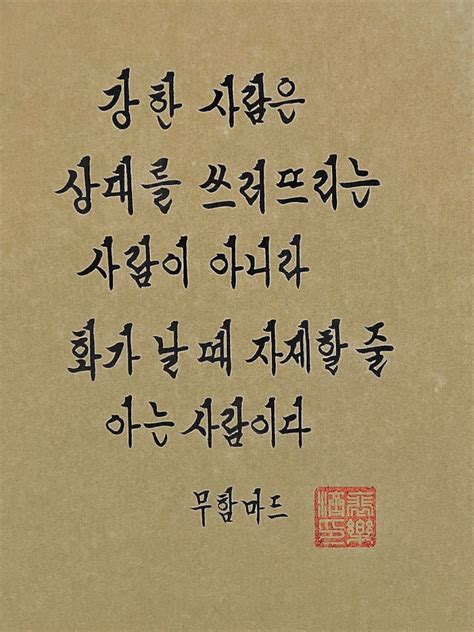 강한 사람은
상대를 쓰러뜨리는
사람이 아니라
화가 날 때 자제할 줄
아는 사람이다
무함마드